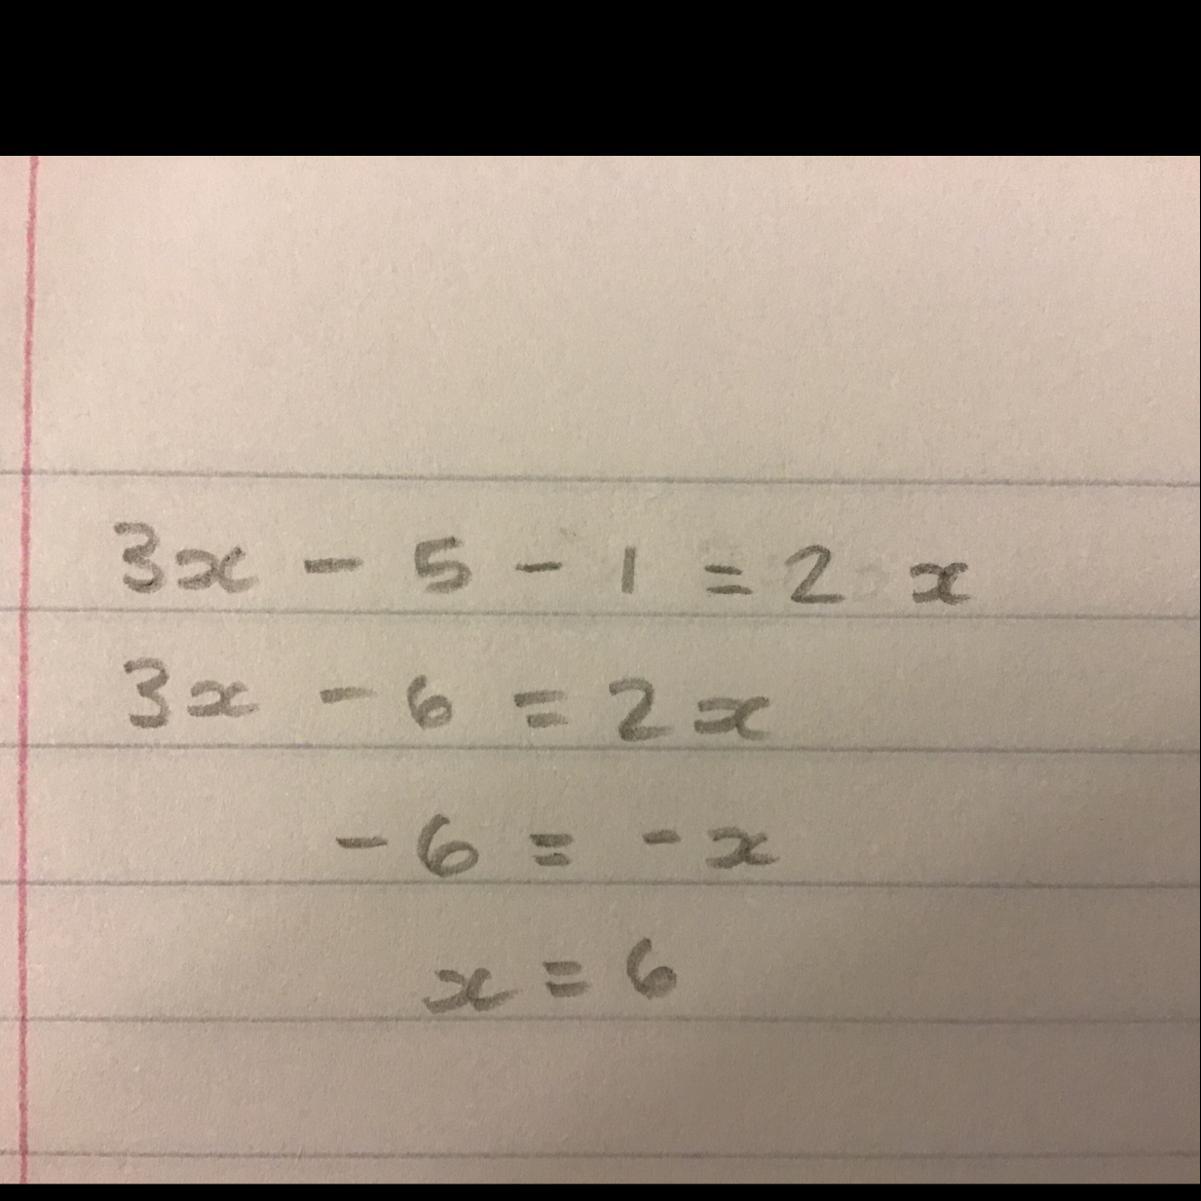 3x - 5 - 1 = 2 x
3x - 6 = 2x
- 6 = - x
x = 6